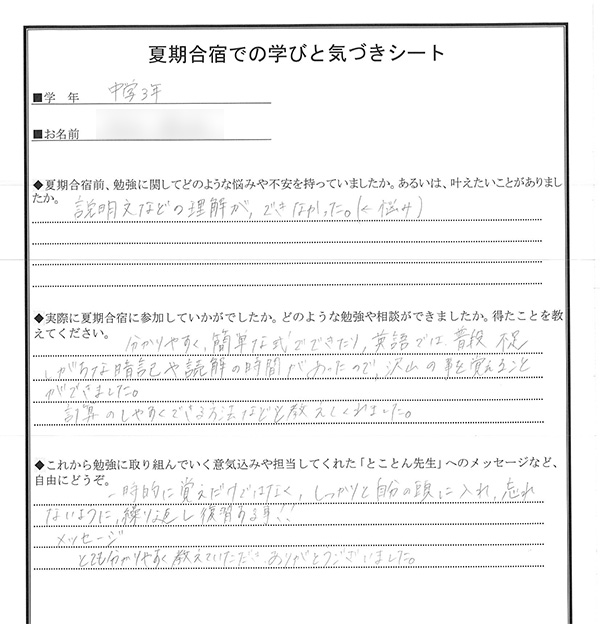 夏期合宿での学びと気づきシート
■学 年 中学3年
■お名前
◆夏期合宿前、勉強に関してどのような悩みや不安を持っていましたか。あるいは、叶えたいことがありまし
たか。
説明文などの理解が、できなかった。(←悩み)
◆実際に夏期合宿に参加していかがでしたか。どのような勉強や相談ができましたか。得たことを教
えてください。
分かりやすく、簡単な式でできたり、英語では、普段 不足
しがちな暗記や読解の時間があったので、沢山の事を覚えること
ができました。
計算のしやすくできる方法などを教えてくれました。
◆これから勉強に取り組んでいく意気込みや担当してくれた「とことん先生」へのメッセージなど、
自由にどうぞ。
一時的に覚えだけではなく、しっかりと自分の頭に入れ、忘れ
ないように、繰り返し復習する事!!
メッセージ
とても分かりやすく教えていただき ありがとうございました。